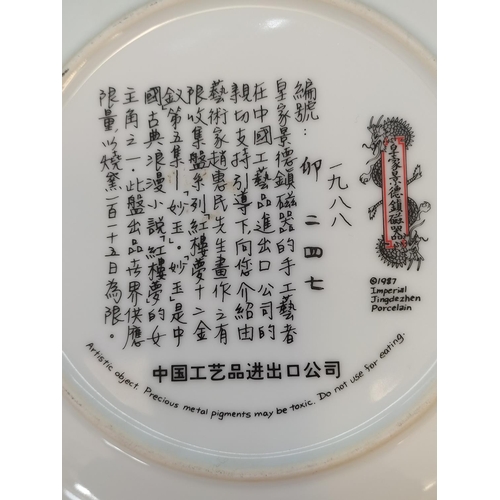 皇家景德鎮磁器
©1987
Imperial
Jingdezhen
Porcelain
編號：
一九八八
卯 二四七
皇家景德鎮磁器的手工藝者
在中國工藝品進出口公司的
親切支持引導下，向您介紹由
藝術家趙惠民先生畫作之有
限收集盤系列「紅樓夢十二金
釵」第五集—「妙玉」。妙玉是中
國古典浪漫小說「紅樓夢」的女
主角之一。此盤出品在世界供應
限量，以燒窯一百一十五日為限。
中国工艺品进出口公司
Artistic object. Precious metal pigments may be toxic. Do not use for eating.